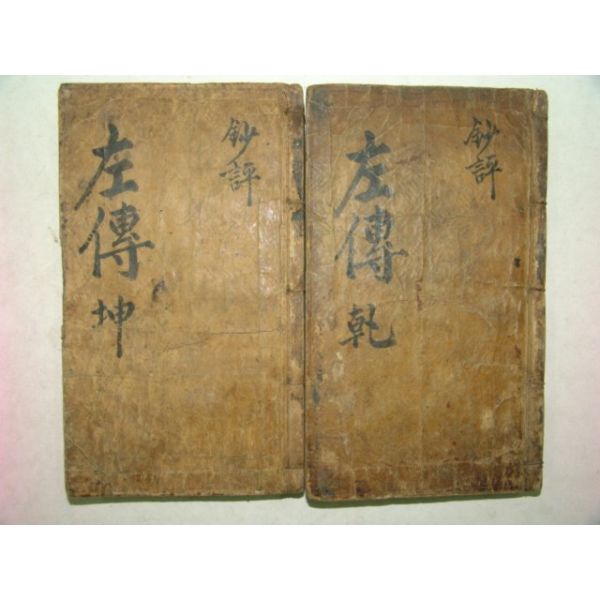 鈔評
左傳 乾
鈔評
左傳 坤